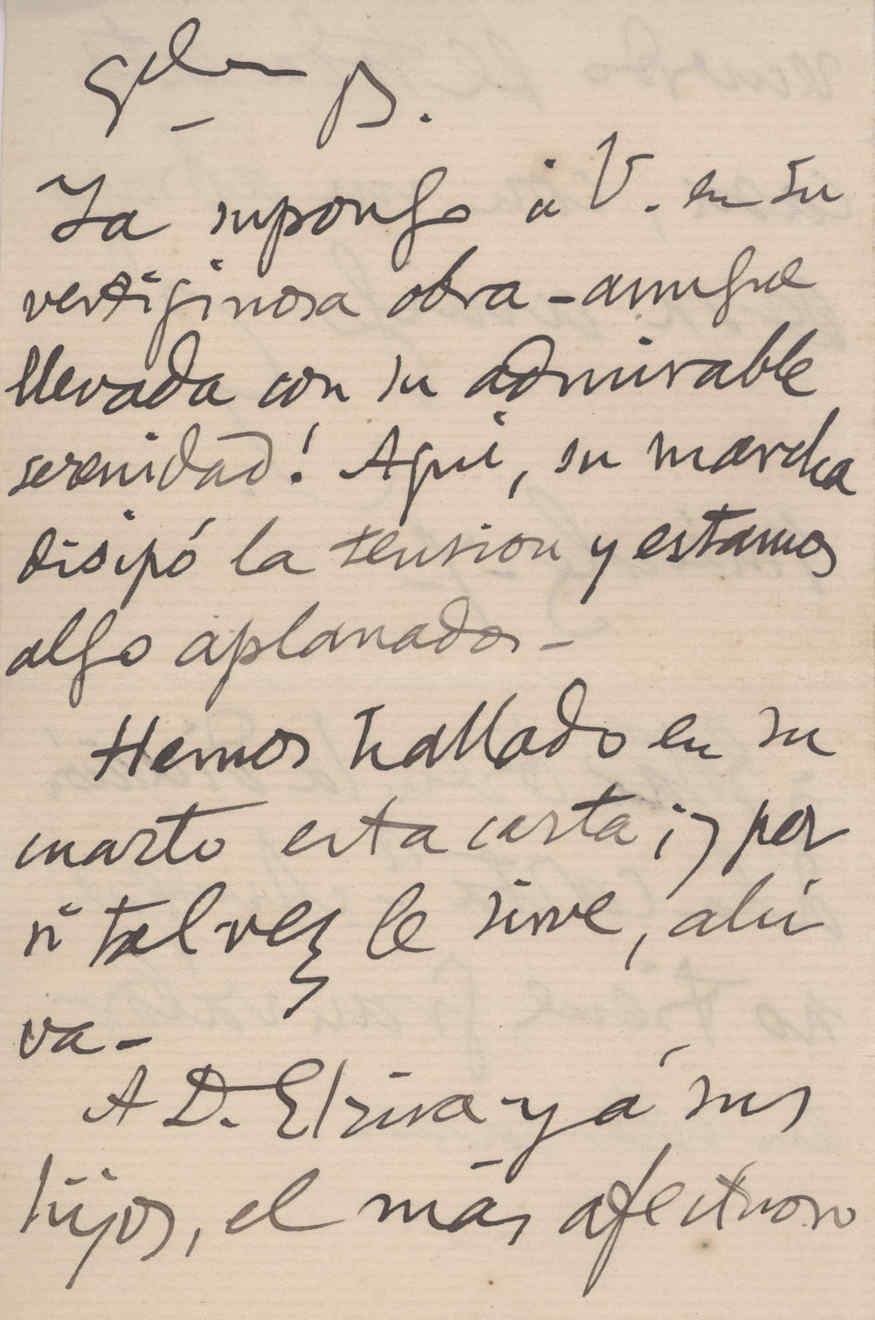 B.
Ya supongo á V. en su
vertiginosa obra - aunque
llevada con su admirable
serenidad! Aqui, su marcha
disipó la tension y estamos
algo aplanados -
Hemos hallado en su
cuarto esta carta; y por
si tal vez le sirve, ahi
va -
A D. Elisa y á sus
hijos, el más afectuoso